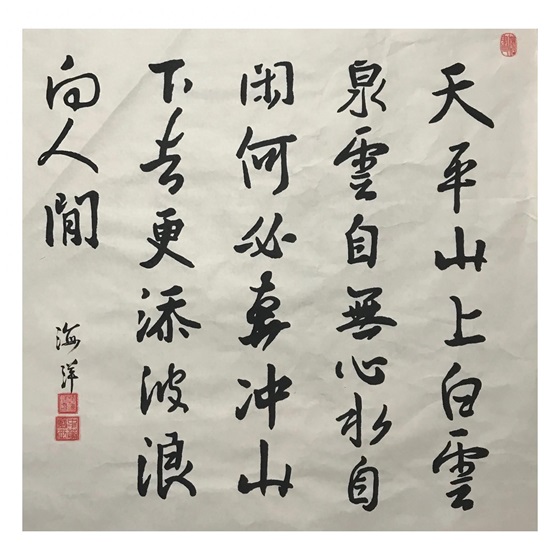 天平山上白雲
泉雲自無心水自
閑何必奔冲山
下去更添波浪
向人間
海洋